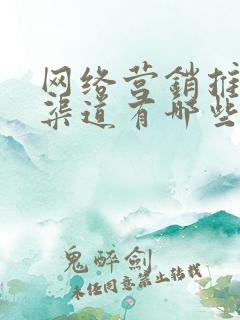 网络营銷推
渠道有哪些
鬼醉劍
未经同意禁止转载